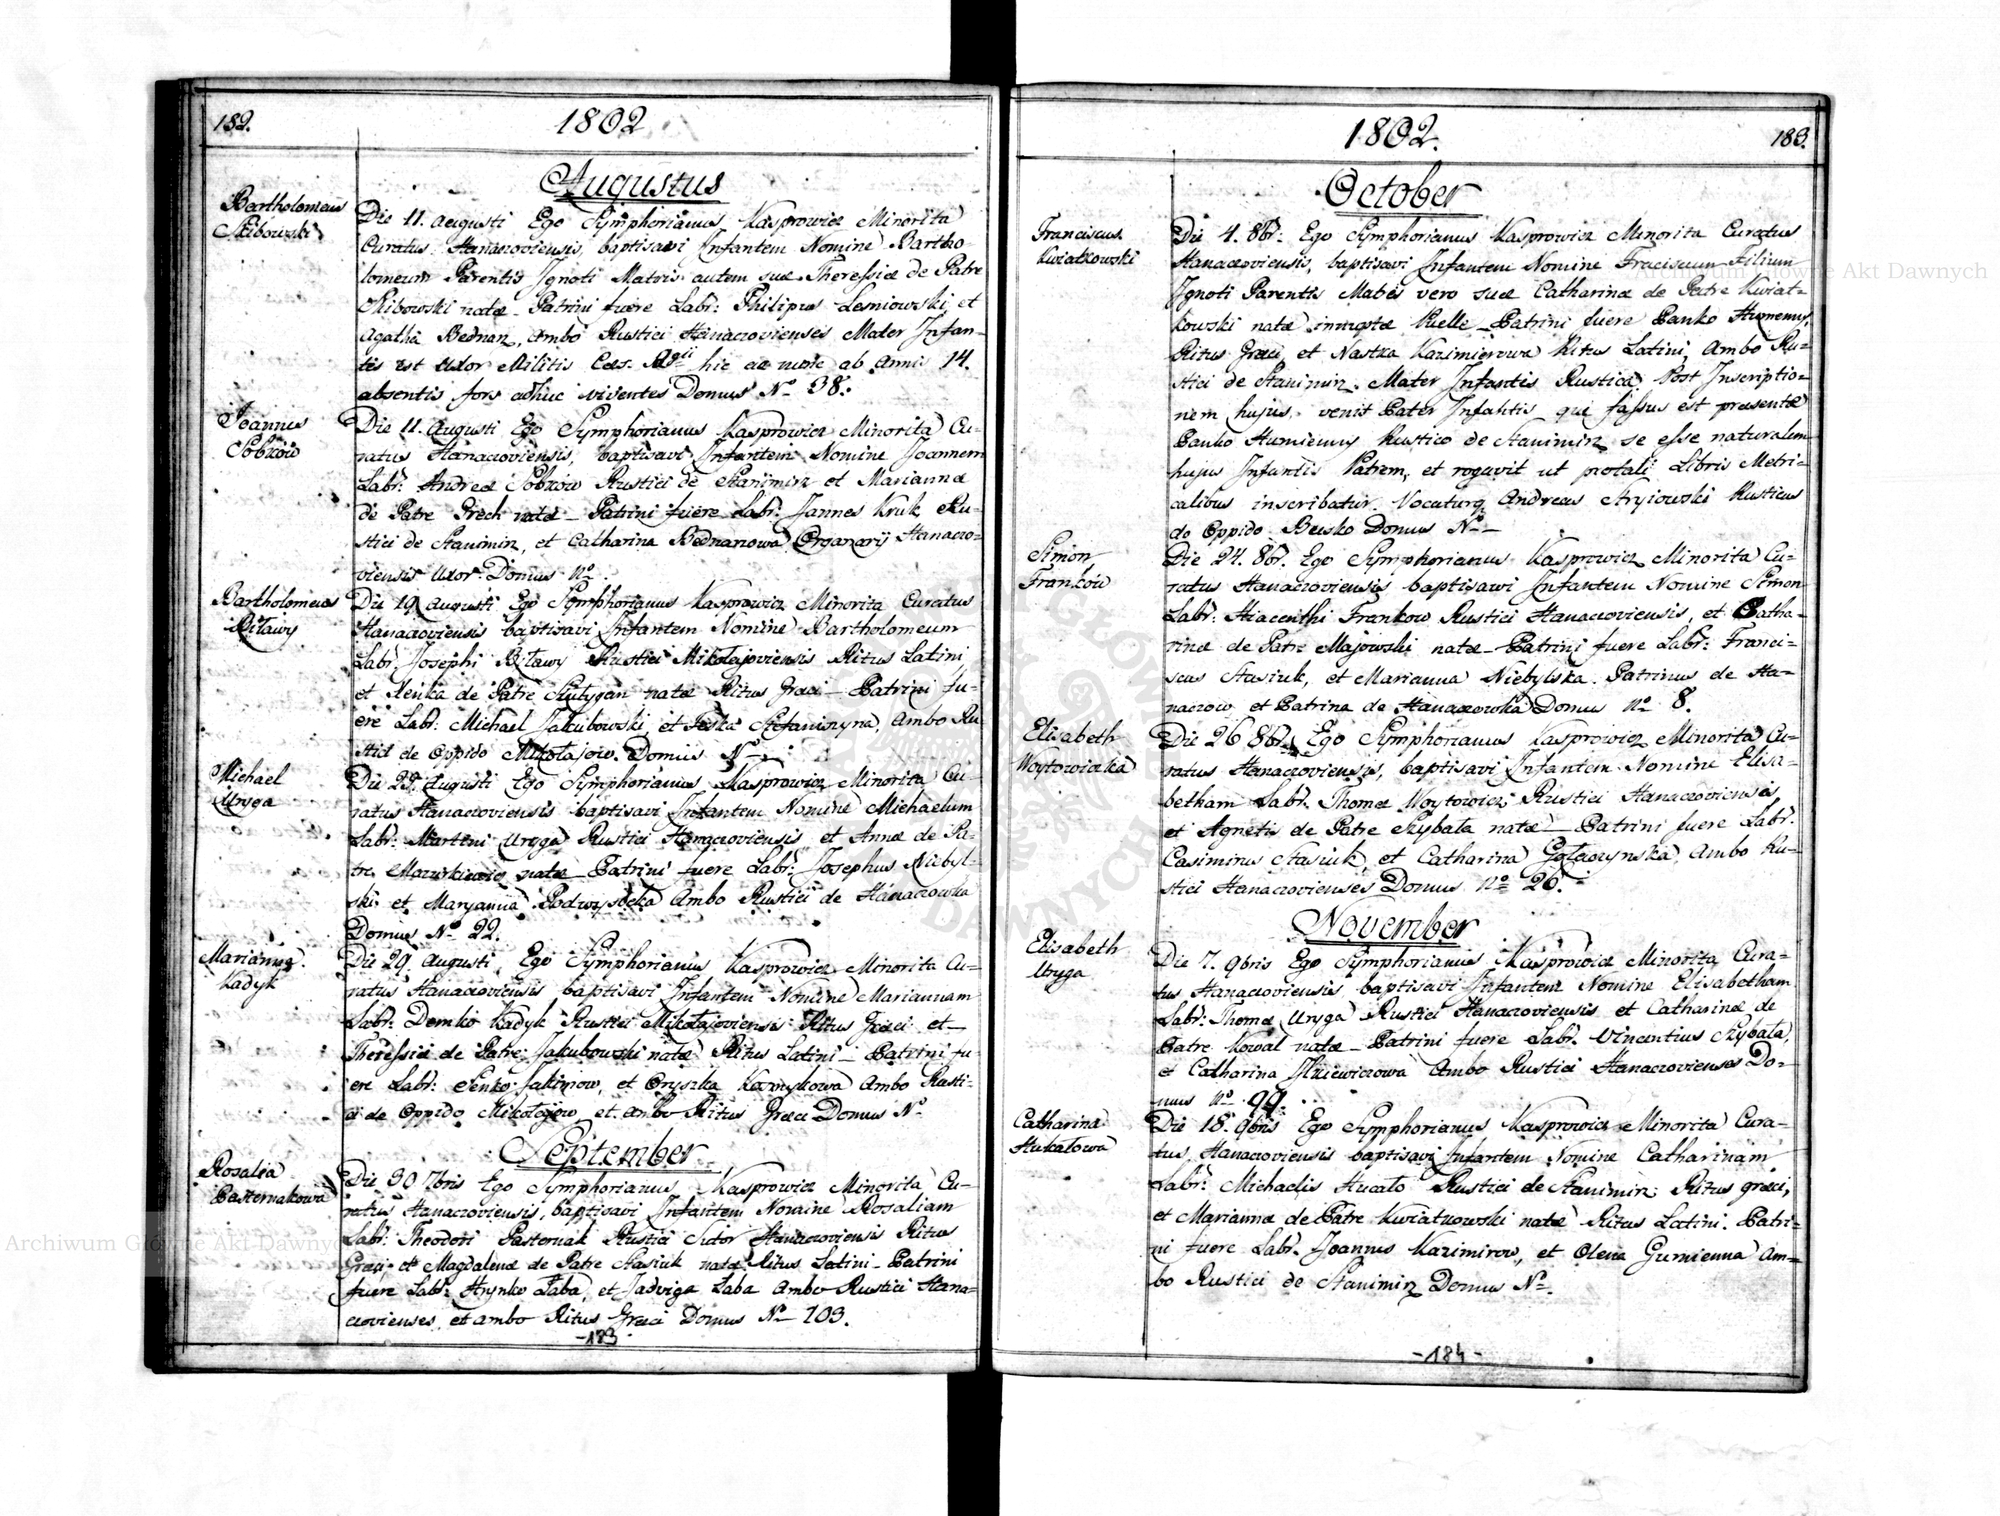 182.
1802
Augustus
Bartholomeus
Skibowski
Die 11. Augusti Ego Symphorianus Kasprowicz Minorita
Curatus Hanaczoviensis, baptisavi Infantem Nomine Bartho-
lomeum Parentis Ignoti Matris autem suæ Theressiæ de Patre
Skibowski natæ – Patrini fuere Labr: Philipus Lesniowski, et
Agatha Bednarz, ambo Rustici Hanaczovienses Mater Infan-
tis est uxor Militis Cæs: hic ac nunc ab Annis 14.
absentis fors adhuc viventes Domus No 38.
Joannes
Sobkow
Die 11. Augusti Ego Symphorianus Kasprowicz Minorita Cu-
ratus Hanaczoviensis, baptisavi Infantem Nomine Joannem
Labr: Andreæ Sobkow Rustici de Stanimirz et Mariannæ
de Patre Grech natæ – Patrini fuere Labr: Joannes Kruk Ru-
stici de Stanimirz, et Catharina Bednarzowa Organarij Hanaczo-
viensis Uxor Domus No
Bartholomeus
Biławy
Die 19 Augusti Ego Symphorianus Kasprowicz Minorita Curatus
Hanaczoviensis baptisavi Infantem Nomine Bartholomeum
Labr: Josephi Biławy Rustici Mikołajoviensis Ritus Latini
et de Patre natæ Ritus Græci – Patrini fu-
ere Labr: Michael Jakubowski, et Ambo Ru-
stici de Oppido Mikołajow. Domus No
Michael
Uryga
Die 23. Augusti Ego Symphorianus Kasprowicz Minorita Cu-
ratus Hanaczoviensis baptisavi Infantem Nomine Michaelum
Labr: Martini Uryga Rustici Hanaczoviensis et Annæ de Pa-
tre Mazurkiewicz natæ – Patrini fuere Labr: Josephus Niebyl-
ski et Maryanna Podwysocka Ambo Rustici de Hanaczowka
Domus No 22.
Marianna
Kadyk
Die 29 Augusti, Ego Symphorianus Kasprowicz Minorita Cu-
ratus Hanaczoviensis baptisavi Infantem Nomine Mariannam
Labr: Demko Kadyk Rustici Mikołajoviensis Ritus Græci et
Theressiæ de Patre Jakubowski natæ Ritus Latini – Patrini fu-
ere Labr: Senko Jakimow, et Oryszka Ambo Rusti-
ci de Oppido Mikołajow, et ambo Ritus Græci Domus No
September
Rosalia
Pasternakowa
Die 30 7bris Ego Symphorianus Kasprowicz Minorita Cu-
ratus Hanaczoviensis, baptisavi Infantem Nomine Rosaliam
Labr: Theodori Pasternak Rustici Sutor Hanaczoviensis Ritus
Græci et Magdalenæ de Patre Stasiuk natæ Ritus Latini – Patrini
fuere Labr: Hrynko Łaba, et Jadviga Łaba Ambo Rustici Hana-
czovienses, et ambo Ritus Græci Domus No 103.
-183-
1802.
183.
October
Franciscus
Kwiatkowski
Die 4. 8br: Ego Symphorianus Kasprowicz Minorita Curatus
Hanaczoviensis, baptisavi Infantem Nomine Franciscum Filium
Ignoti Parentis Matris vero suæ Catharinæ de Patre Kwiat-
kowski natæ Puelle – Patrini fuere Panko Humenny,
Ritus Græci, et Nastka Kazimierowa Ritus Latini, Ambo Ru-
stici de Stanimirz. Mater Infantis Rustica, Post Inscriptio-
nem hujus, venit Pater Infantis qui fassus est præsente
Panko Humienny Rustico de Stanimirz se esse naturalem
hujus Infantis Patrem, et rogavit ut pro tali Libris Metri-
calibus inscribatur. Vocaturq Andreas Stryiowski Rusticus
de Oppido Domus No –
Simon
Franków
Die 24. 8br. Ego Symphorianus Kasprowicz Minorita Cu-
ratus Hanaczoviensis baptisavi Infantem Nomine Simon
Labr: Hiacenthi Frankow Rustici Hanaczoviensis, et Catha-
rinæ de Patre Majowski natæ – Patrini fuere Labr: Franci-
scus Stasiuk, et Marianna Niebylska. Patrinus de Ha-
naczow et Patrina de Hanaczowka Domus No 8.
Elisabeth
Woytowiczka
Die 26 8br. Ego Symphorianus Kasprowicz Minorita Cu-
ratus Hanaczoviensis, baptisavi Infantem Nomine Elisa-
betham Labr: Thomæ Woytowicz Rustici Hanaczoviensis
et Agnetis de Patre Szybała natæ – Patrini fuere Labr:
Casimirus Stasiuk, et Catharina Gołaczynska, Ambo Ru-
stici Hanaczovienses Domus No 26.
November
Elisabeth
Uryga
Die 7. 9bris Ego Symphorianus Kasprowicz Minorita Cura-
tus Hanaczoviensis baptisavi Infantem Nomine Elisabetham
Labr: Thomæ Uryga Rustici Hanaczoviensis et Catharinæ de
Patre Kowal natæ – Patrini fuere Labr. Vincentius Szybała,
et Catharina Ambo Rustici Hanaczovienses Do-
mus No 99.
Catharina
Hukałowa
Die 18. 9bris Ego Symphorianus Kasprowicz Minorita Cura-
tus Hanaczoviensis baptisavi Infantem Nomine Catharinam
Labr: Michaelis Hucało Rustici de Stanimirz Ritus græci,
et Mariannæ de Patre Kwiatkowski natæ Ritus Latini. Patri-
ni fuere Labr. Joannes Kazimirow, et Olena Gumienna Am-
bo Rustici de Stanimirz Domus No.
-184-
Archiwum Główne Akt Dawnych
Archiwum Główne Akt Dawnych